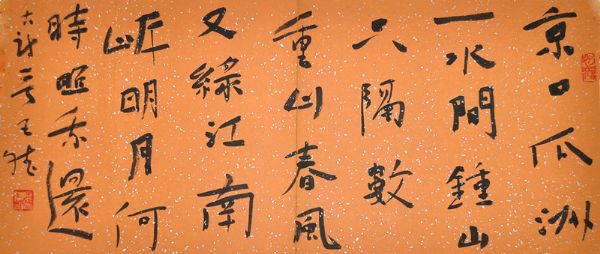 京口瓜洲
一水間鍾山
只隔數
重山春風
又綠江南
岸明月何
時照我還